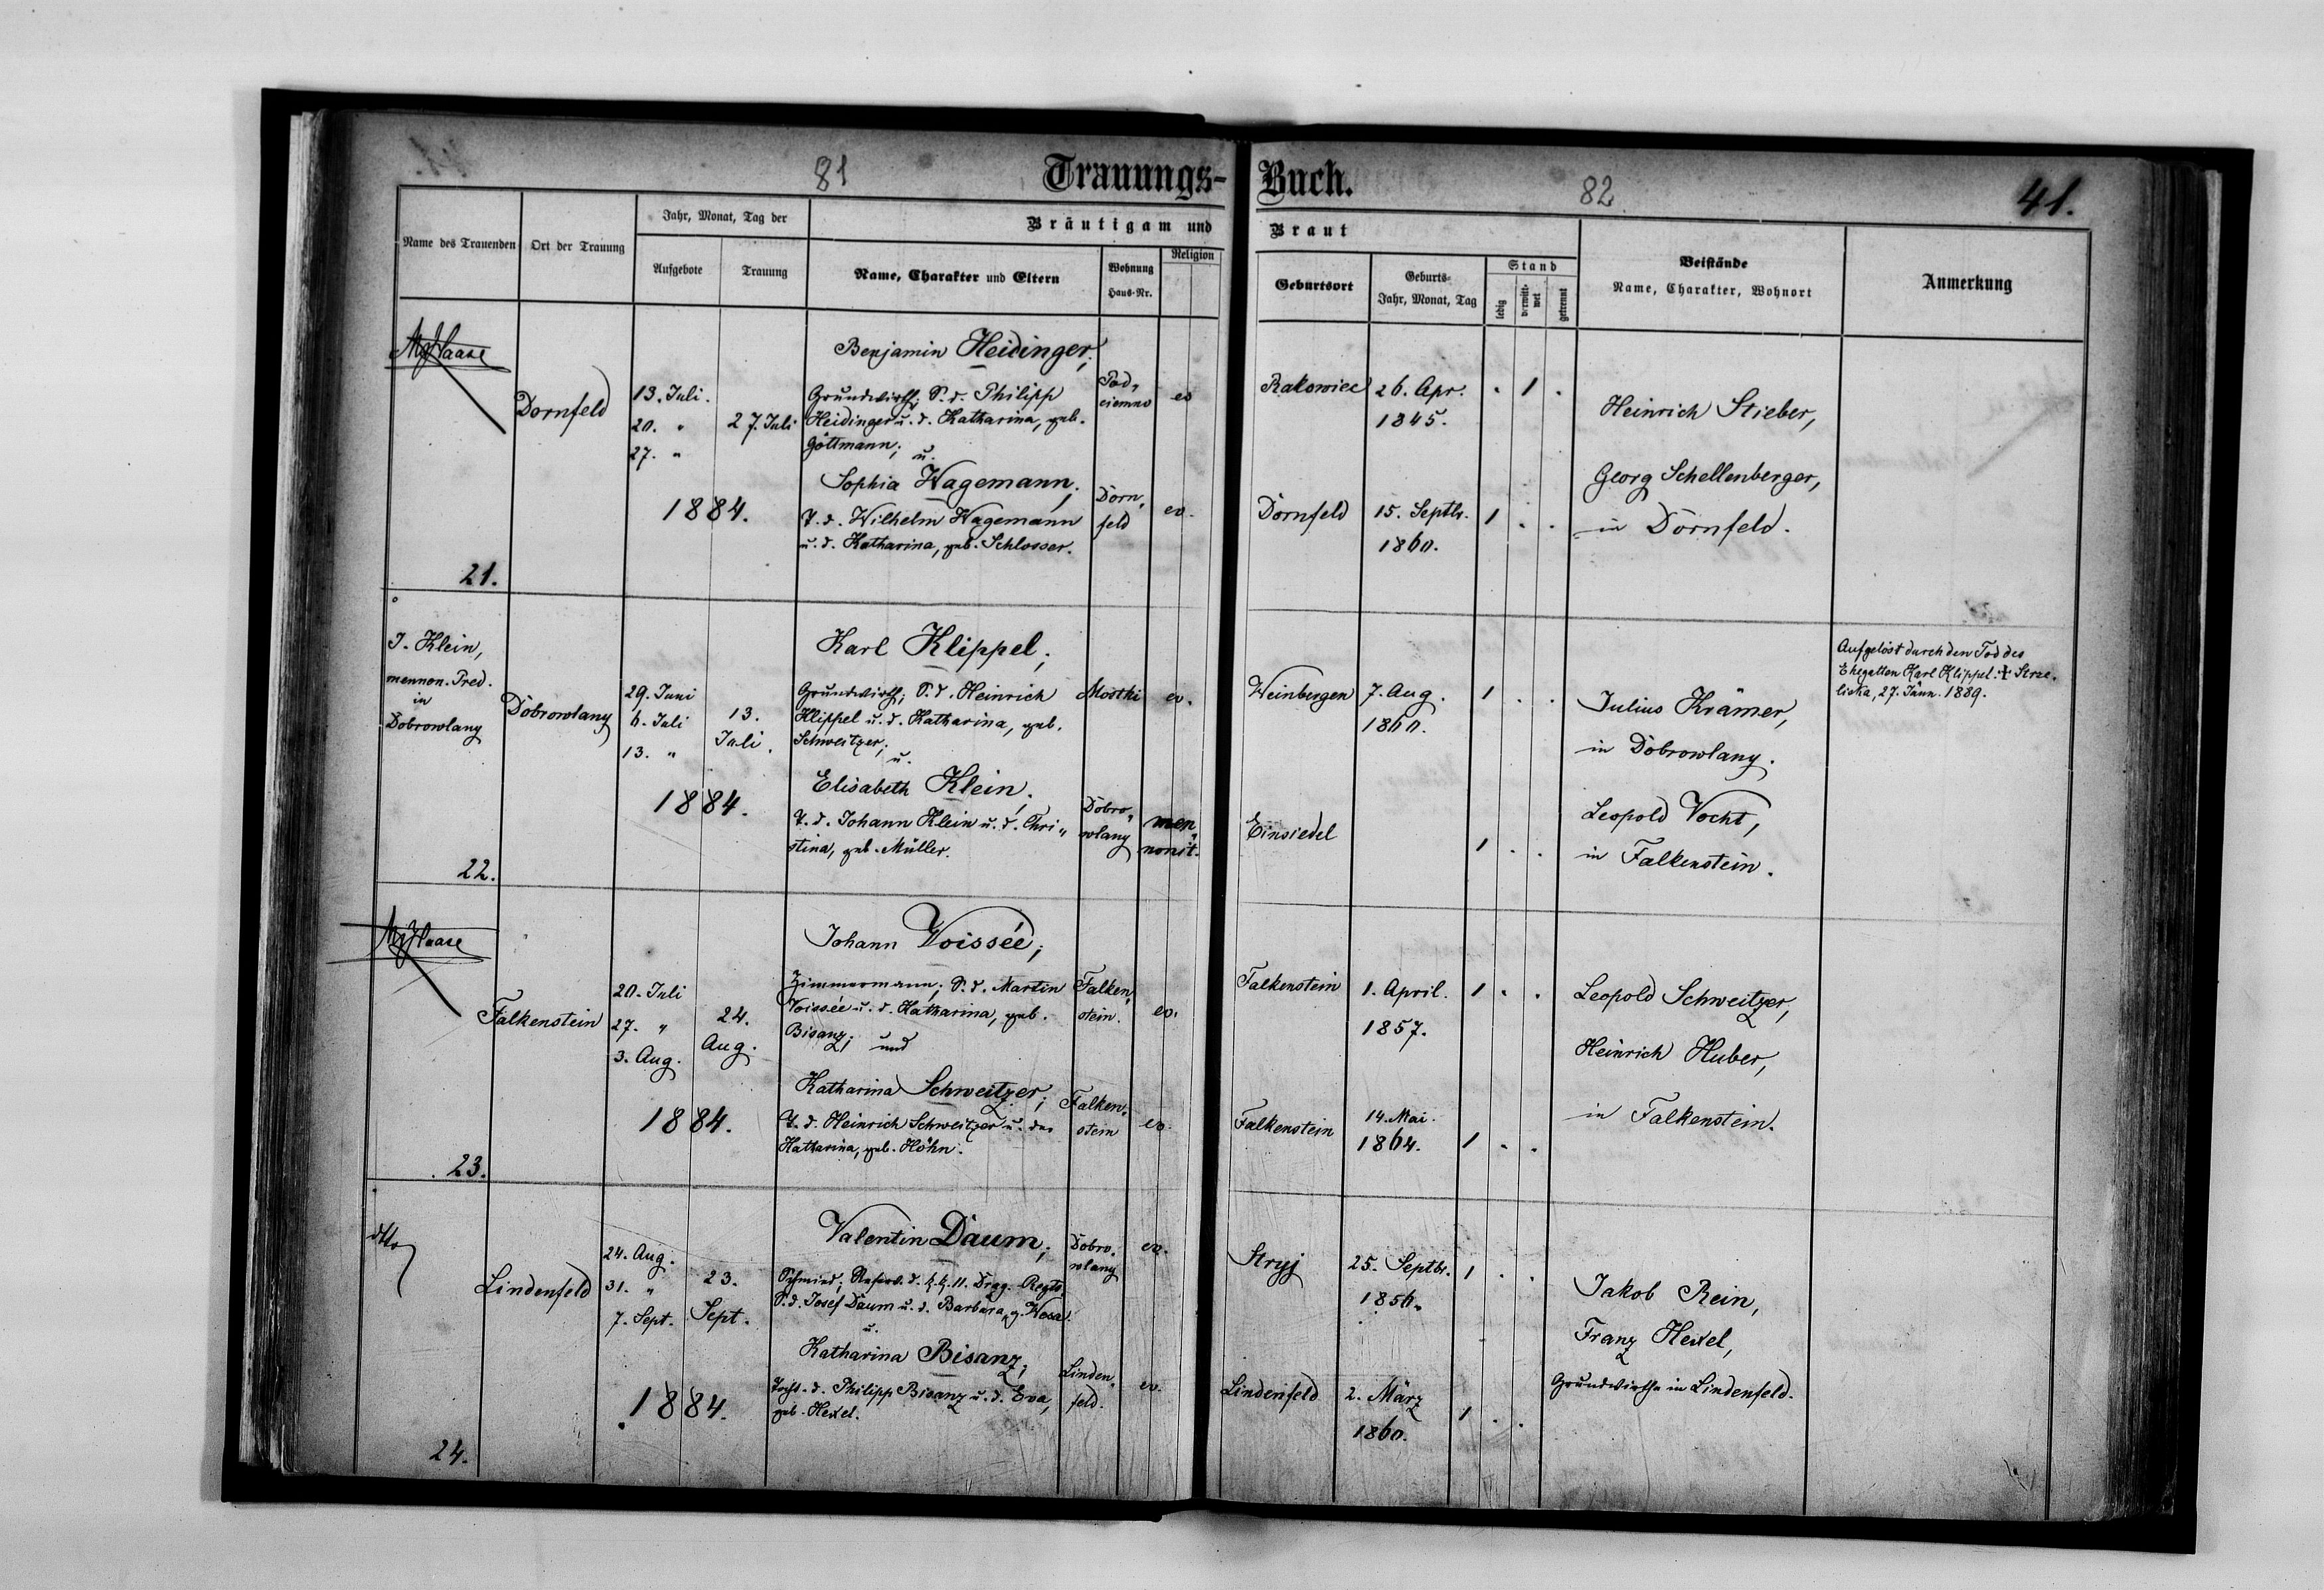 81
Trauungs-Buch.
82
41.
Name des Trauenden
Ort der Trauung
Jahr, Monat, Tag der
Aufgebote
Trauung
Bräutigam und Braut
Name, Charakter und Eltern
Wohnung
Haus-Nr.
Religion
Geburtsort
Geburts-
Jahr, Monat, Tag
Stand
ledig
verwitt-
wet
getrennt
Beistände
Name, Charakter, Wohnort
Anmerkung
Haase
Dornfeld
13. Juli.
20. "
27. "
27. Juli
1884.
21.
Benjamin Heidinger;
Grundwirth; S. d. Philipp
Heidinger u. d. Katharina, geb.
Göttmann; u.
Sophia Wagemann;
T. d. Wilhelm Wagemann
u. d. Katharina, geb. Schlosser.
Pod,
ciemno
ev
Dorn,
feld
ev.
Rakowiec
26. Apr.
1845.
. 1 .
Dornfeld
15. Septb.
1860.
1 . .
Heinrich Stieber,
Georg Schellenberger,
in Dornfeld.
J. Klein,
mennon. Pred.
in
Dobrowlany
Dobrowlany
29. Juni
6. Juli
13. "
13.
Juli.
1884.
22.
Karl Klippel;
Grundwirth; S. d. Heinrich
Klippel u. d. Katharina, geb.
Schweitzer;
u.
Elisabeth Klein;
T. d. Johann Klein u. d. Chri"
stina, geb. Müller.
Mostki
ev.
Dobro"
wlany
men"
nonit.
Weinbergen
7. Aug.
1860.
1 . .
Einsiedel
1 . .
Julius Krämer,
in Dobrowlany.
Leopold Vocht,
in Falkenstein.
Aufgelöst durch den Tod des
Ehegatten Karl Klippel. ✝ Strze,
licka, 27. Jänn. 1889.
Haase
Falkenstein
20. Juli
27. "
3. Aug.
24.
Aug.
1884.
23.
Johann Voissée;
Zimmermann; S. d. Martin
Voissée u. d. Katharina, geb.
Bisanz; und
Katharina Schweitzer;
T. d. Heinrich Schweitzer u. der
Katharina, geb. Höhn.
Falken,
stein.
ev.
Falken,
stein
ev.
Falkenstein
1. April.
1857.
1 . .
Falkenstein
14. Mai.
1864.
1 . .
Leopold Schweitzer,
Heinrich Huber,
in Falkenstein.
dtto
Lindenfeld
24. Aug.
31. "
7. Sept.
23.
Sept.
1884.
24.
Valentin Daum;
Schmied; Reserv. d. k. k. 11. Drag. Regts
S. d. Josef Daum u. d. Barbara, g. Wesa.
u.
Katharina Bisanz;
Tocht. d. Philipp Bisanz u. d. Eva,
geb. Hexel.
Dobro,
wlany
ev.
Linden,
feld.
ev.
Stryj
25. Septbr.
1856.
1 . .
Lindenfeld
2. März
1860.
1 . .
Jakob Rein,
Franz Hexel,
Grundwirthe in Lindenfeld.